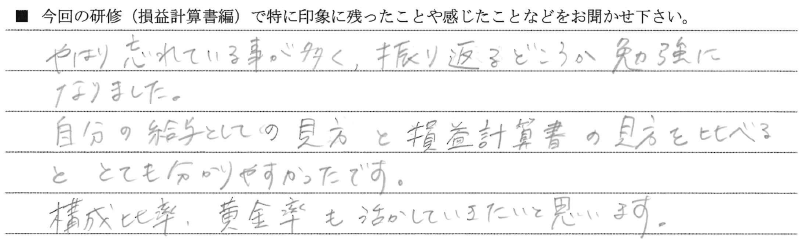 ■ 今回の研修（損益計算書編）で特に印象に残ったことや感じたことなどをお聞かせ下さい。
やはり忘れている事が多く、振り返るどころか勉強に
なりました。
自分の給与としての見方と損益計算書の見方を比べる
ととても分かりやすかったです。
構成比率、黄金率も活かしていきたいと思います。